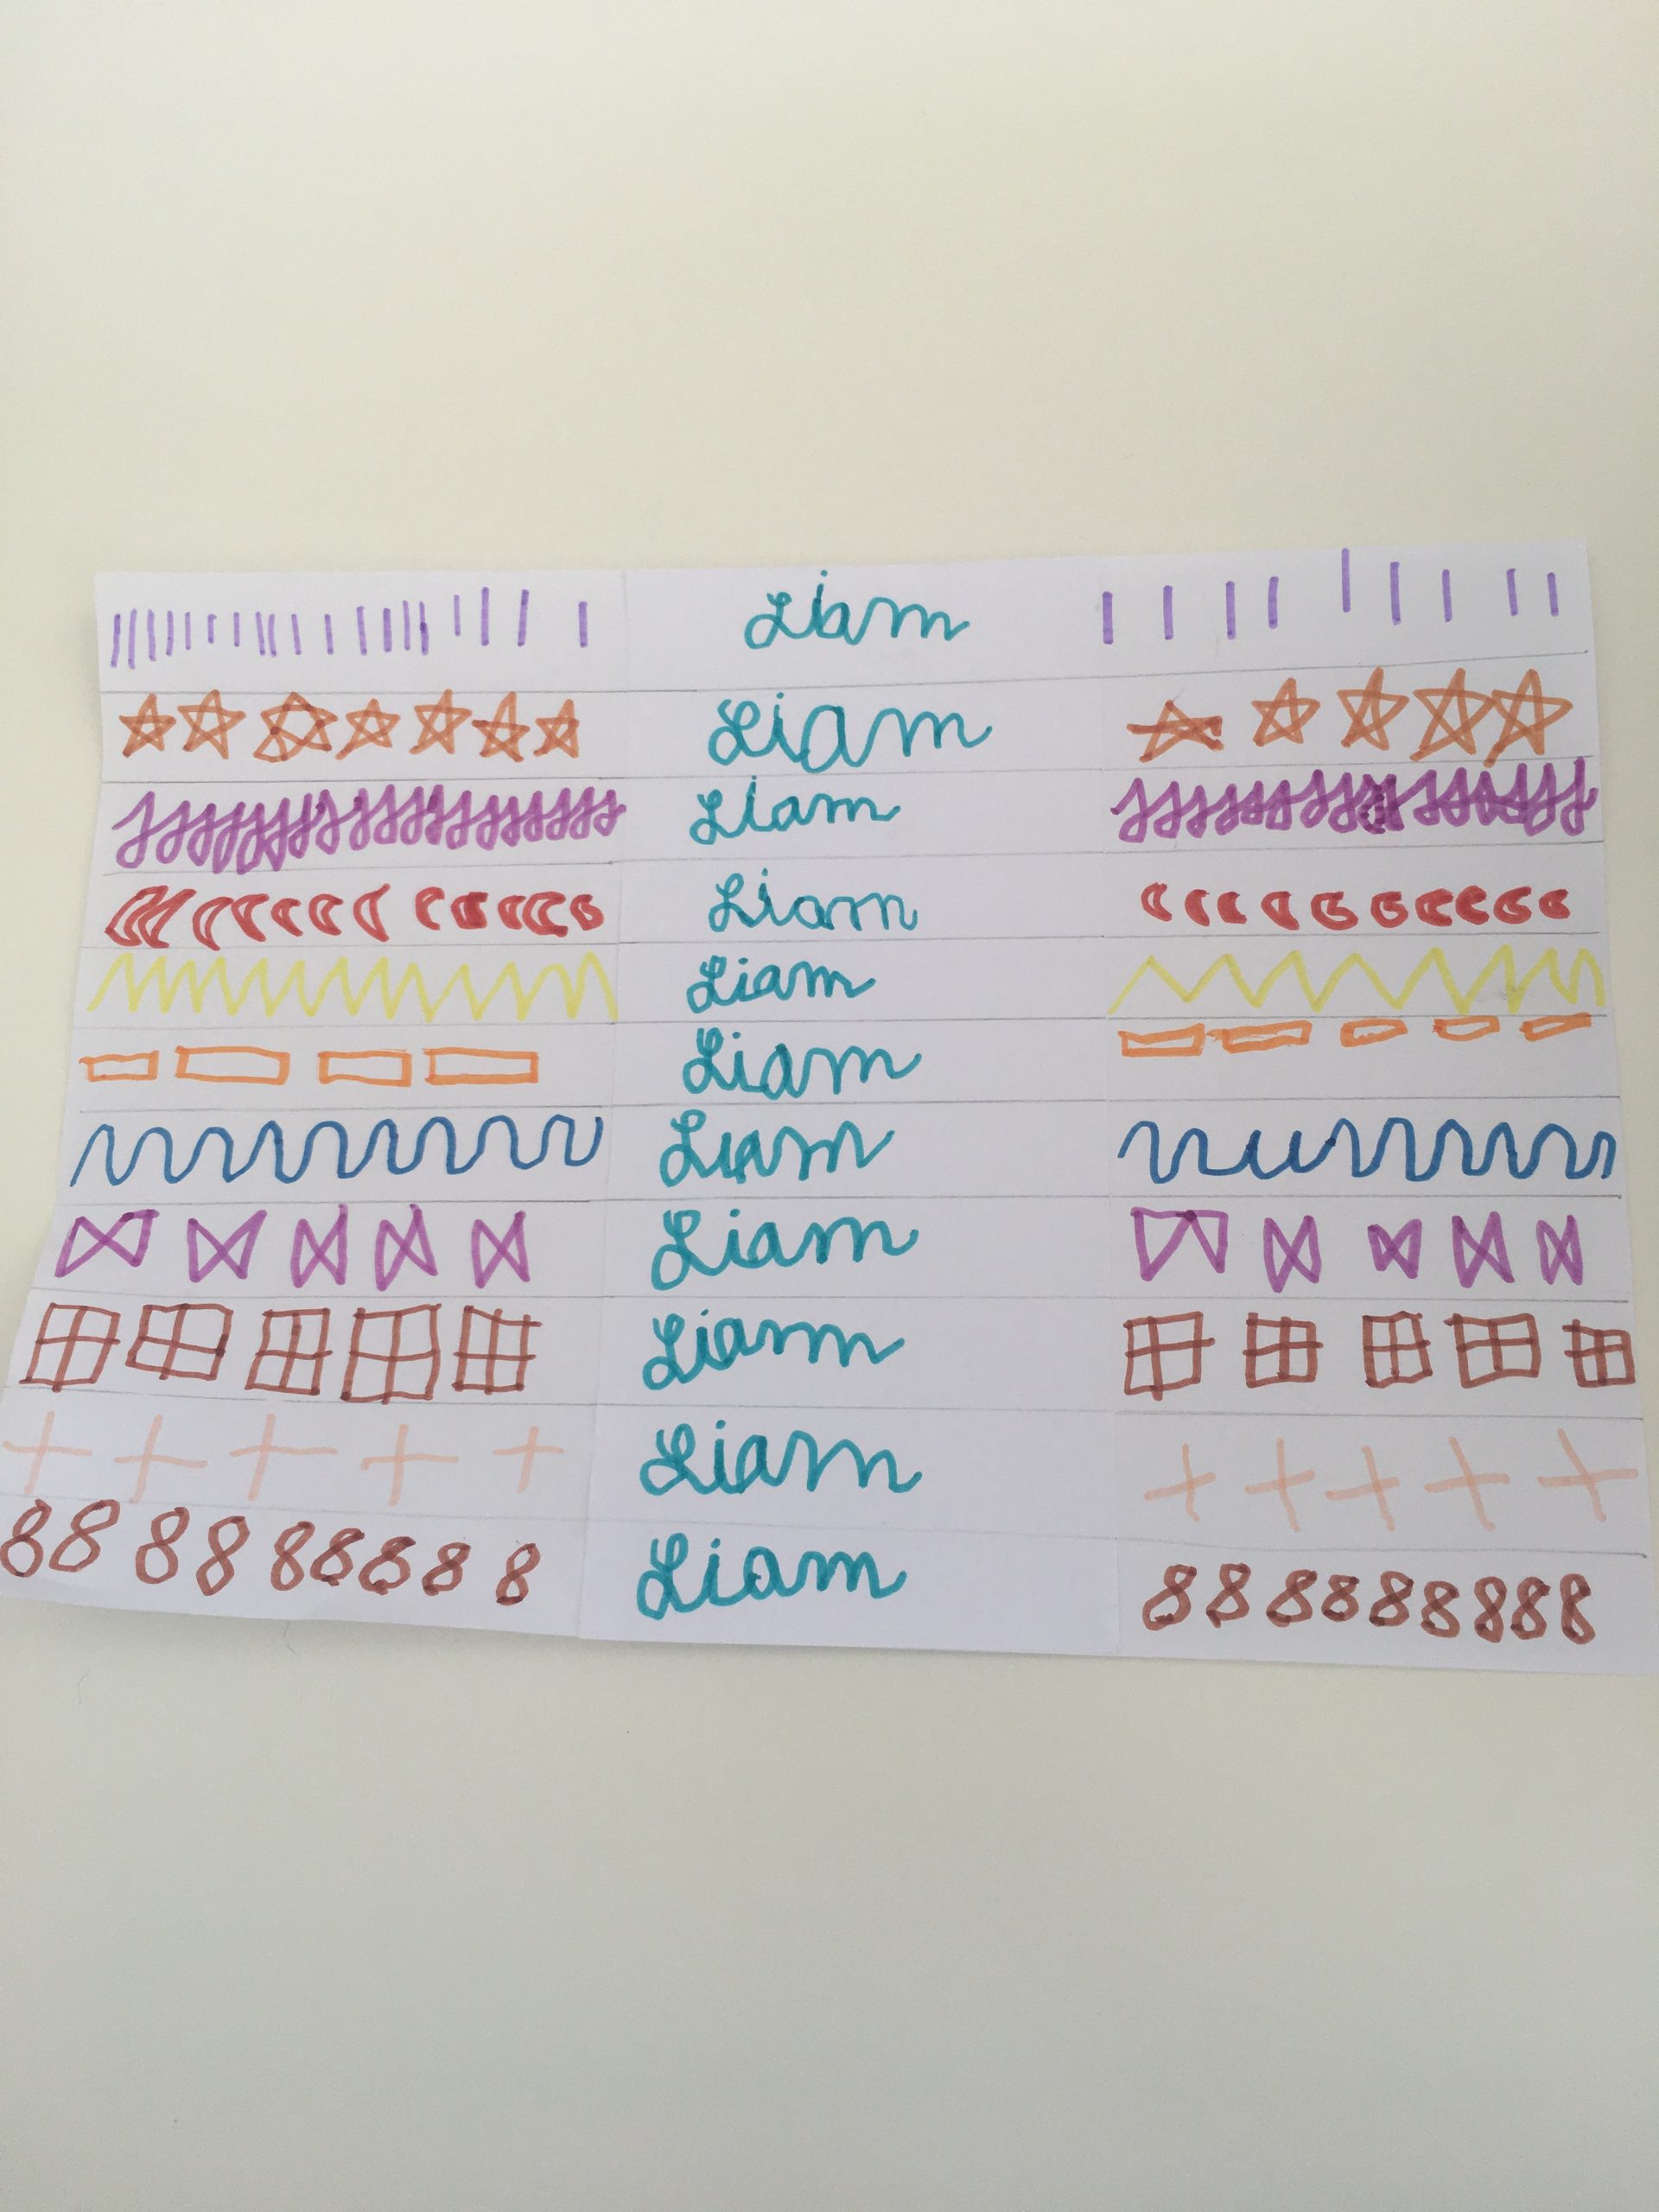 Liam
Liam
Liam
Liam
Liam
Liam
Liam
Liam
Liam
Liam
888888888 Liam 888888888